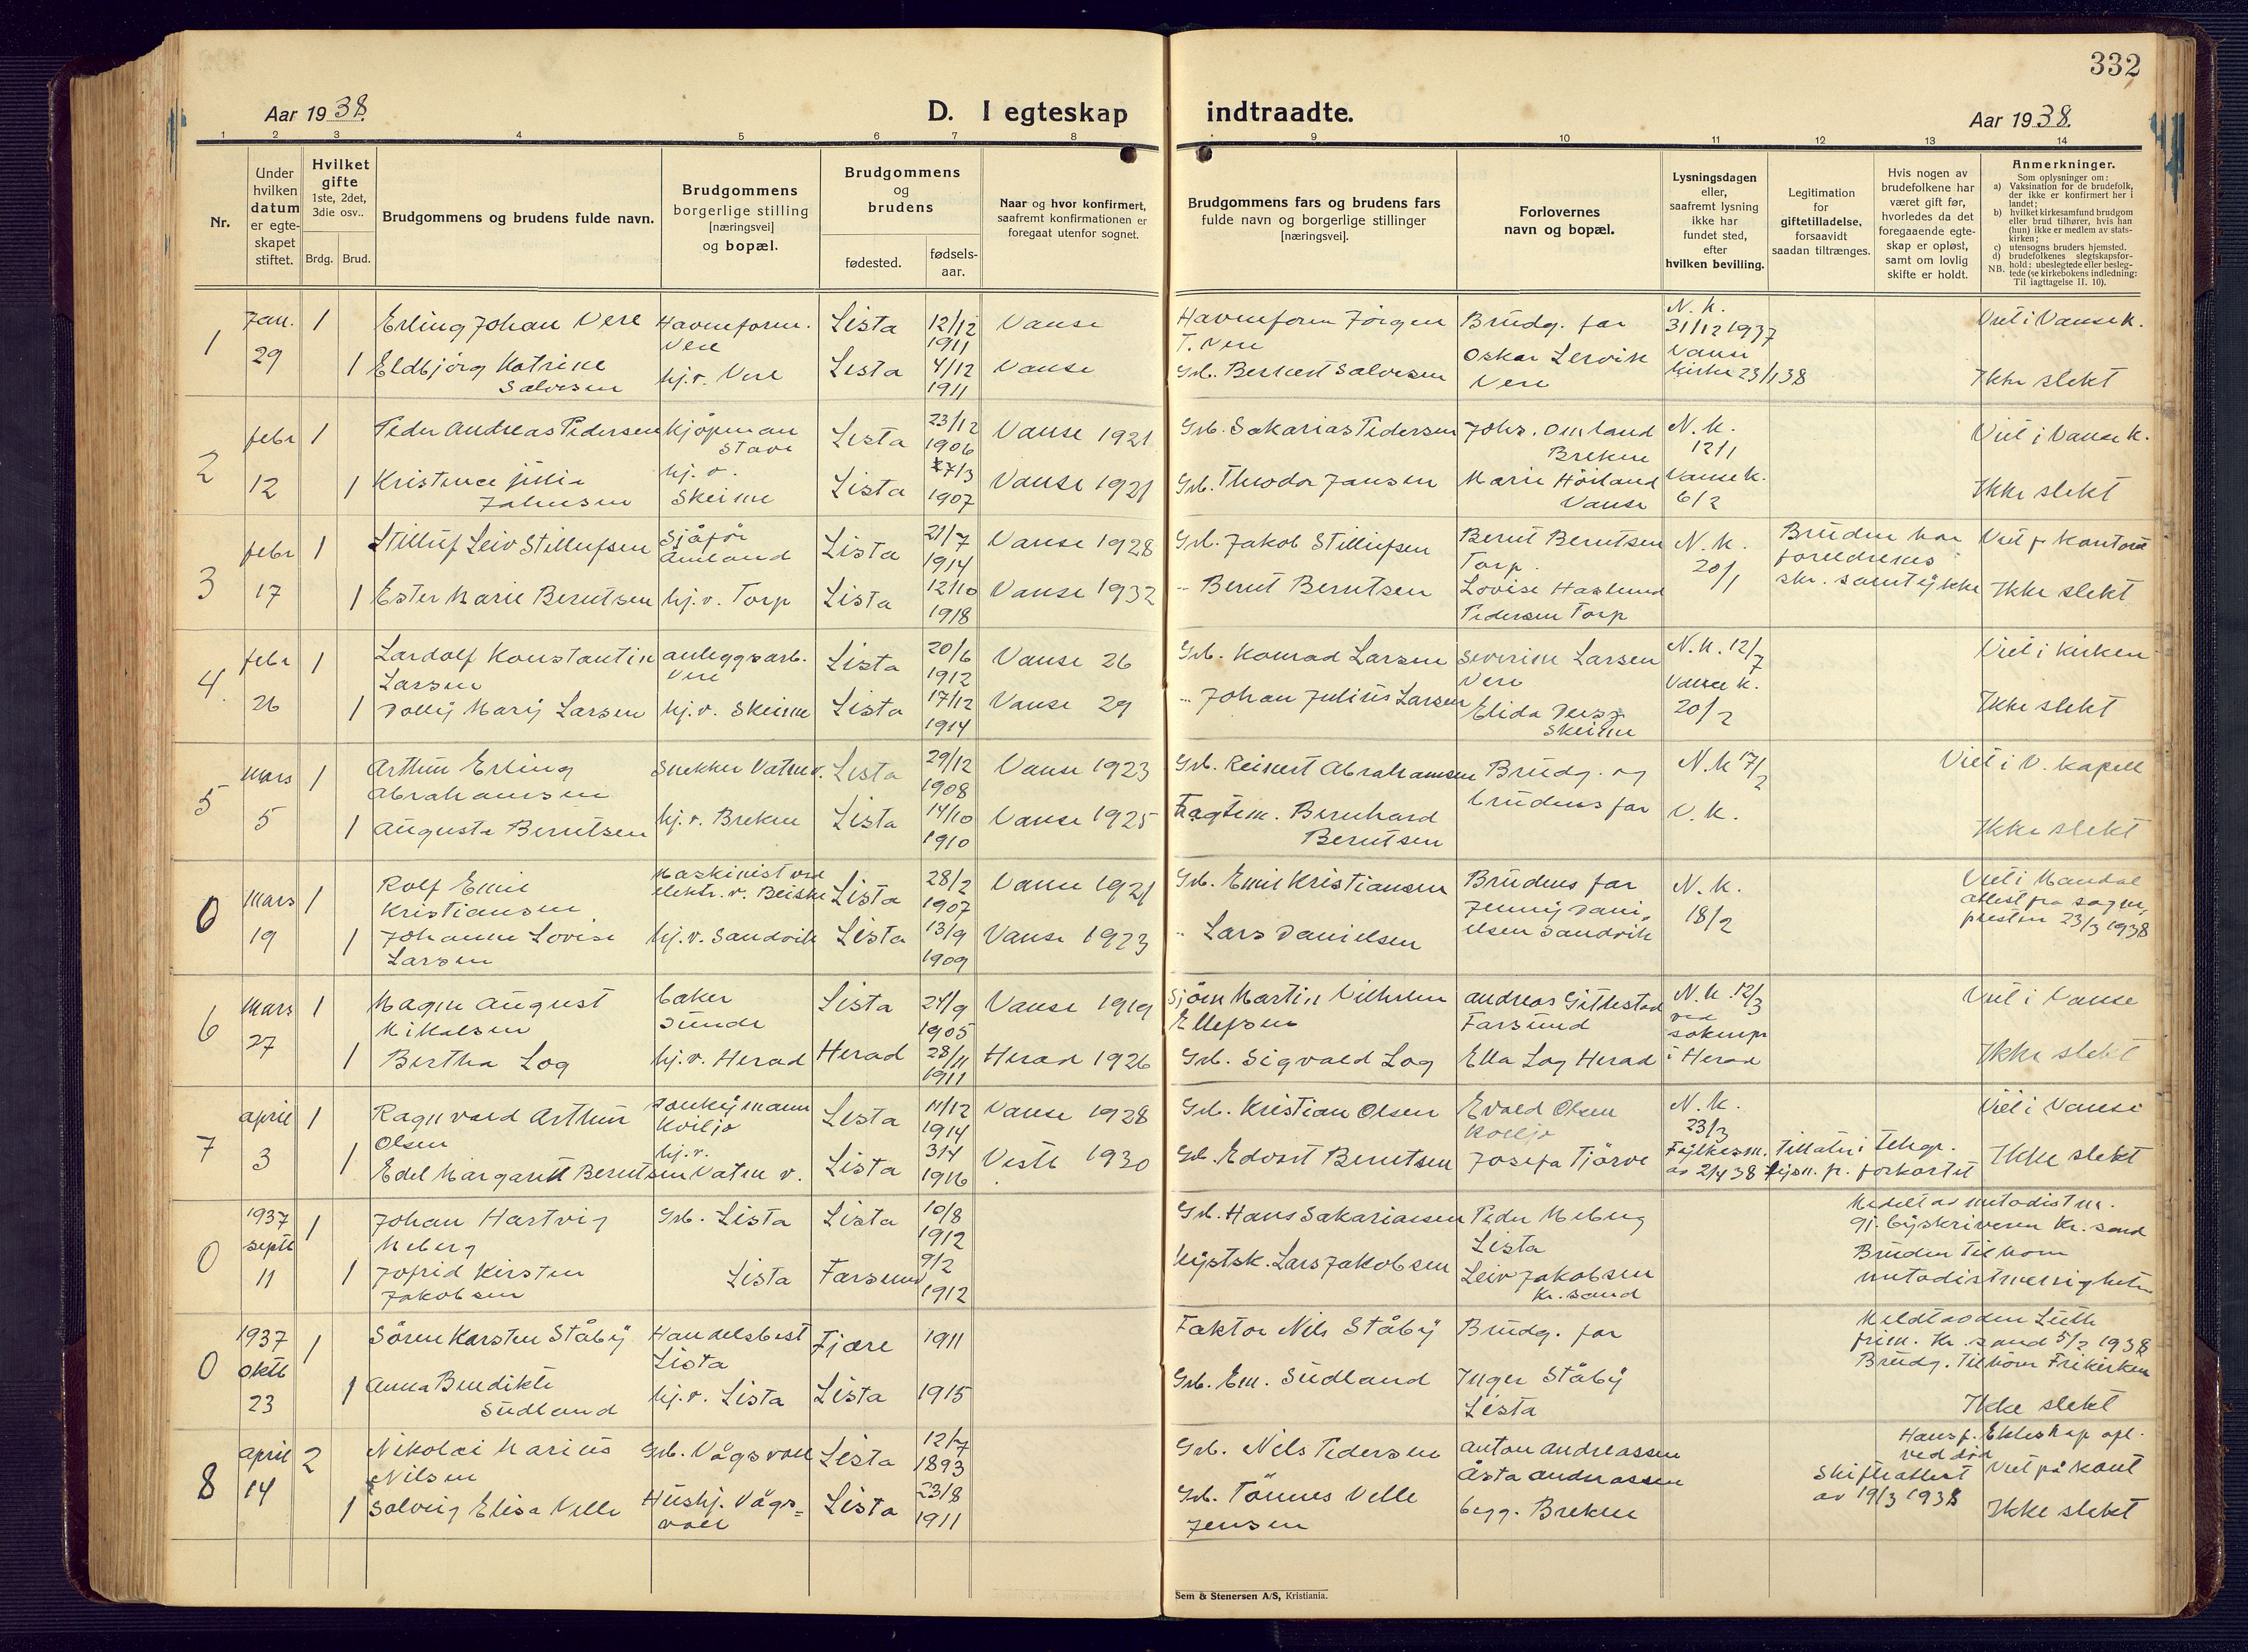 332
Aar 1938.
D. I egteskap
indtraadte.
Aar 1938.
1 2 3 4 5 6 7 8 9 10 11 12 13 14
Nr.
Under
hvilken
datum
er egte-
skapet
stiftet.
Hvilket
gifte
1ste, 2det,
3die osv..
Brdg. Brud.
Brudgommens og brudens fulde navn.
Brudgommens
borgerlige stilling
[næringsvei]
og bopæl.
Brudgommens
og
brudens
fødested.
fødsels-
aar.
Naar og hvor konfirmert,
saafremt konfirmationen er
foregaat utenfor sognet.
Brudgommens fars og brudens fars
fulde navn og borgerlige stillinger
[næringsvei].
Forlovernes
navn og bopæl.
Lysningsdagen
eller,
saafremt lysning
ikke har
fundet sted,
efter
hvilken bevilling.
Legitimation
for
giftetilladelse,
forsaavidt
saadan tiltrænges.
Hvis nogen av
brudefolkene har
været gift før,
hvorledes da det
foregaaende egte-
skap er opløst,
samt om lovlig
skifte er holdt.
Anmerkninger.
Som oplysninger om:
a) Vaksination for de brudefolk,
der ikke er konfirmert her i
landet;
b) hvilket kirkesamfund brudgom
eller brud tilhører, hvis han
(hun) ikke er medlem av stats-
kirken;
c) utensogns bruders hjemsted.
d) brudefolkenes slegtskapsfor-
hold: ubeslegtede eller besleg-
NB. tede (se kirkebokens indledning:
Til iagttagelse II. 10).
1 Jan. 29 1 Erling Johan Vere Havneform. Vere Lista 12/12 1911 Vanse Havneform Jörgen T. Vere Brudg. far N.K. 31/12 1937 Viet i Vanse k.
1 Eldbjörg Katrine Salvesen hj.v. Vere Lista 4/12 1911 Vanse Grb. Berent Salvesen Oskar Lervik Vere Vanse kirke 23/1 38 Ikke slekt
2 febr 12 1 Peder Andreas Pedersen Kjöpman Stave Lista 23/12 1906 Vanse 1921 Grb. Sakarias Pedersen Johs. Omland Brekne N.K. 12/1 Viet i Vanse k.
1 Kristence Julie hj.v. Skeime Lista 27/3 1907 Vanse 1921 Grb. Theodor Jansen Marie Höiland Vanse Vanse k. 6/2 Ikke slekt
3 febr 17 1 Stilluf Leiv Stillufsen Sjåför Åmland Lista 21/7 1914 Vanse 1928 Grb. Jakob Stillufsen Berut Berntsen Torp. N.K. 20/1 Bruden har foreldrenes skr. samtykke Viet p. kontoret
1 Ester Marie Berntsen hj.v. Torp Lista 12/10 1918 Vanse 1932 " Bernt Berntsen Lovise Haslund Pedersen Torp Ikke slekt
4. febr 26 1 Lardolf Konstantin Larsen anleggsarb. Vere Lista 20/6 1912 Vanse 26 Grb. Konrad Larsen Severine Larsen Vere N.K. 12/7 Viet i kirken
1 Dolly Mary Larsen hj.v. Skeime Lista 17/12 1914 Vanse 29 " Johan Julius Larsen Elida Skeime Vanse k. 20/2 Ikke slekt
5 mars 5 1 Arthur Erling Abrahamsen Snekker Vatne v. Lista 29/12 1908 Vanse 1923 Grb. Reinert Abrahamsen Brudg. og brudens far N.K 17/2 Viet i V. kapell
1 Augusta Berntsen hj.v. Brekne Lista 14/10 1910 Vanse 1925 Fragtem. Bernhard Berntsen V.K. Ikke slekt
0 mars 19 1 Rolf Emil Kristiansen Maskinist ved elektr. v. Beiske Lista 28/2 1907 Vanse 1921 Grb. Emil Kristiansen Brudens far N.K. 18/2 Viet i Mandal attest fra sogne, presten 23/3 1938
1 Johanne Lovise Larsen hj.v. Sandvik Lista 13/9 1909 Vanse 1923 " Lars Danielsen Jenny Danielsen Sandvik
6 mars 27 1 Magne August Mikalsen baker Sunde Lista 24/9 1905 Vanse 1919 Sjöm Martin Vilhelm Ellefsen Andreas Gitlestad Farsund N.K. 12/3 ved sokenpr i Herad Viet i Vanse
1 Bertha Log hj.v. Herad Herad 28/11 1911 Herad 1926 Grb. Sigvald Log Ella Log Herad Ikke slekt
7 april 3 1 Ragnvald Arthur Olsen Donkeymann Kviljo Lista 11/12 1914 Vanse 1928 Grb. Kristian Olsen Evald Olsen Kviljo N.K. 23/3 Viet i Vanse
1 Edel Margarett Berntsen hj.v. Vatne v. Lista 3/4 1916 Vestb 1930 Grb. Edvart Berntsen Josefa Tjörve Fylkesm. tillater i telegr. av 2/4 38 lysn. fr. forkortet Ikke slekt
0 1937 septb 11 1 Johan Hartvig Meberg Grb. Lista Lista 10/8 1912 Grb. Hans Sakariassen Peder Meberg Lista Medelt av metodistm. gj. byskriveren Kr.sand
1 Jofrid Kirsten Jakobsen Lista Farsund 9/2 1912 Lars Jakobsen Leiv Jakobsen Kr. sand Bruden tilhörer metodistmenigheten
0 1937 oktb 23 1 Sören Karsten Ståby Handelsbest Lista Fjære 1911 Faktor Nils Ståby Brudg. far Meldt av den Luth frim. Kr.sand 5/2 1938 Brudg. tilhörer Frikirken
1 Anna Bendikte Sudland hj.v. Lista Lista 1915 Grb. Em. Sudland Inger Ståby Lista Ikke slekt
8 april 14 2 Nikolai Marius Nilsen Grb. Vågsvoll Lista 12/7 1893 Grb. Nils Pedersen Anton Andreassen Hans f. Ekteskap opl. ved död
1 Solveig Elisa Velle Hushj. Vågsvoll Lista 23/8 1911 Grb. Tönnes Velle Jensen Åsta Andreassen begg. Brekne Skifteattest av 19/3 1938 Viet på kont Ikke slekt
Sem & Stenersen A/S, Kristiania.